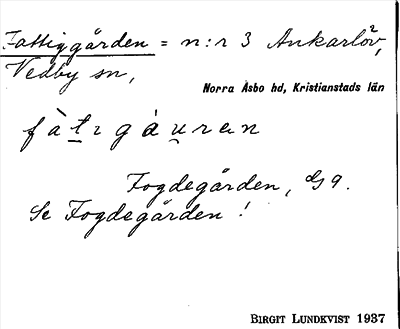 Fattiggården = n:r 3 Ankarlöv,
Vedby sn,
Norra Åsbo hd, Kristianstads län
fàtıgáuran
Fogdegården, G 9.
Se Fogdegården!
BIRGIT LUNDKVIST 1937